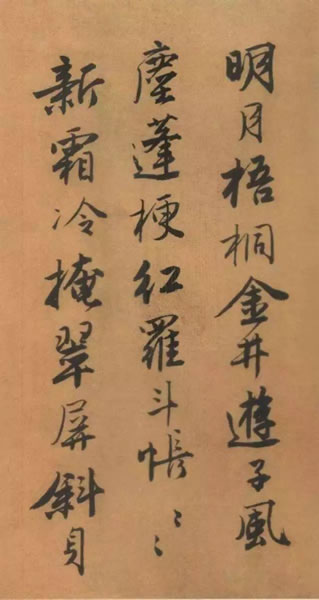 明月梧桐金井遊子風
塵蓬梗紅羅斗帳〻〻
新霜冷掩翠屏斜月